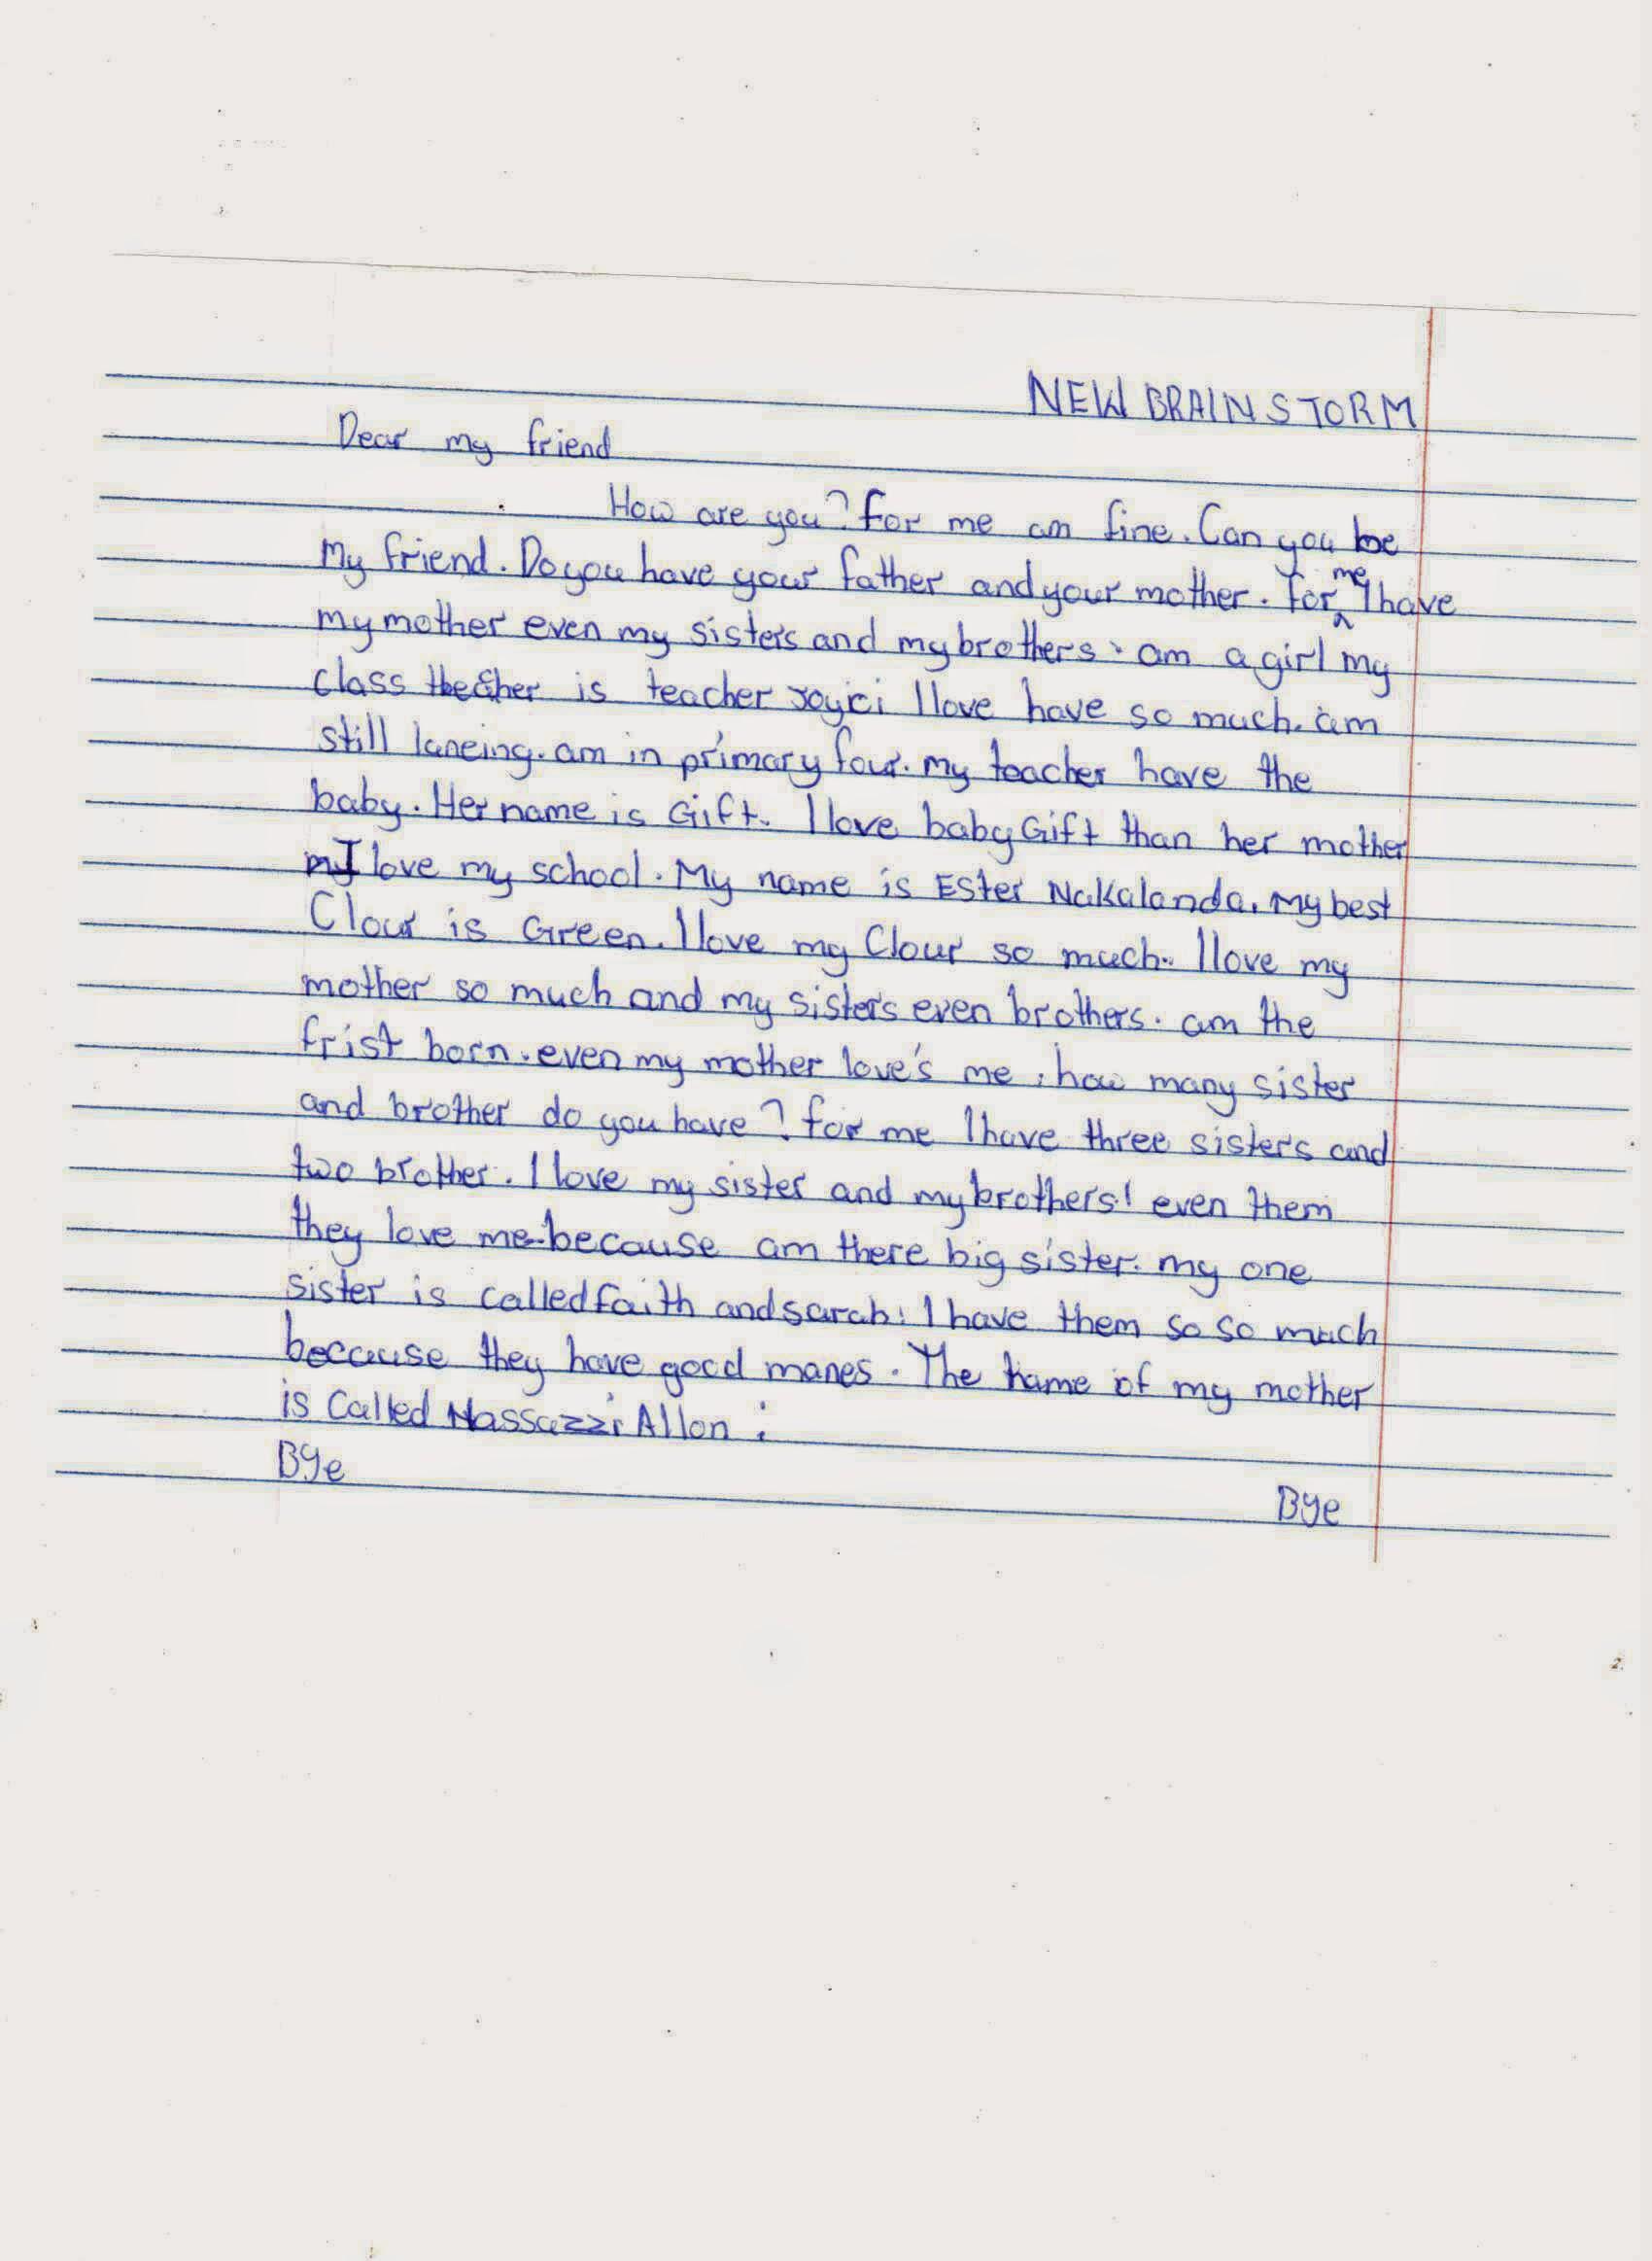 NEW BRAINSTORM
Dear my friend
How are you? for me am fine. Can you be
My friend. Do you have your father and your mother. For me I have
my mother even my sisters and my brothers. am a girl my
class theather is teacher Joyici I love have so much. am
still laneing. am in primary four. my teacher have the
baby. Her name is Gift. I love baby Gift than her mother
I love my school. My name is Ester Nakalanda. My best
Clour is Green. I love my Clour so much. I love my
mother so much and my sisters even brothers. am the
frist born. even my mother love's me. how many sister
and brother do you have? for me I have three sisters and
two brother. I love my sister and my brothers! even them
they love me because am there big sister. my one
sister is called faith and sarah: I have them so so much
because they have good manes. The name of my mother
is Called Nassazzi Allon.
Bye
Bye